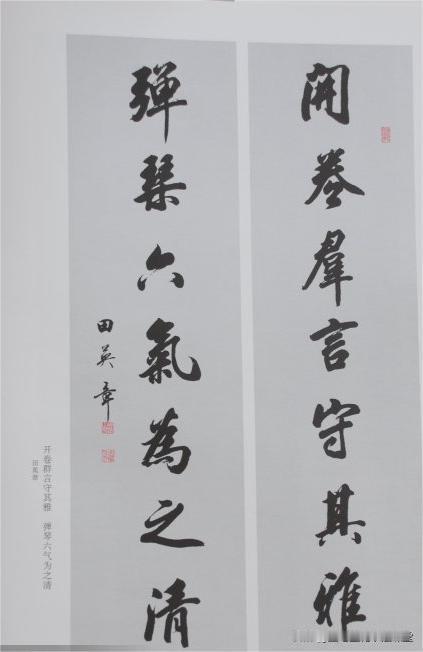 開卷羣言守其雅
彈琴六氣為之清
田英章
开卷群言守其雅 弹琴六气为之清
田英章